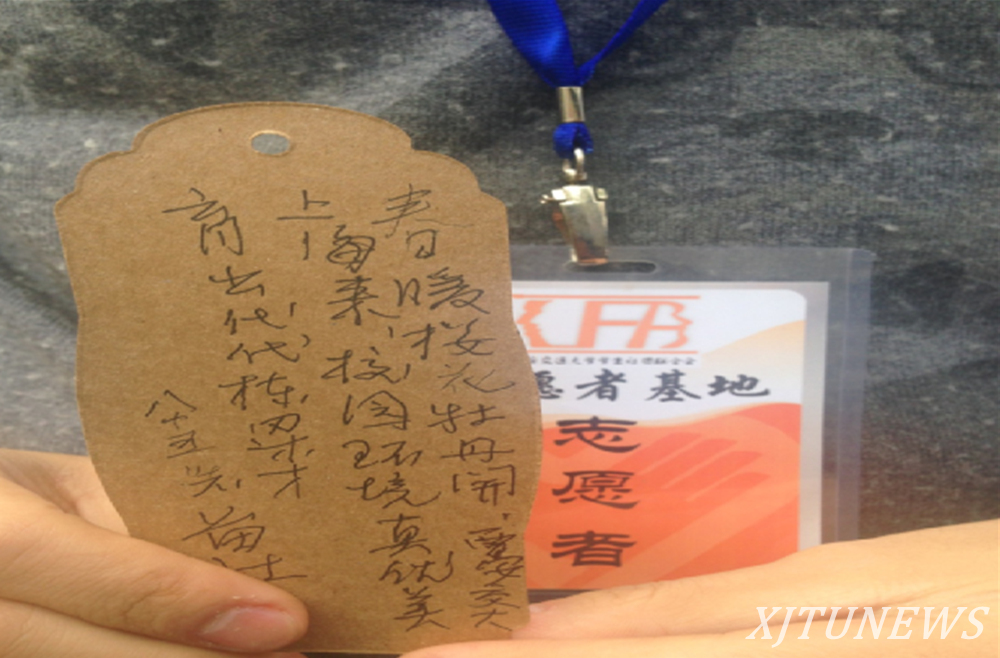 春暖桜花牡丹開，西安交大
上海来，校园环境真优美
育出代代栋梁才
八十五
愿者基地
志愿者
XJTUNEWS